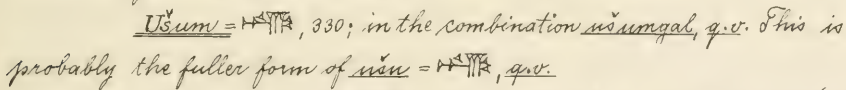 Ušum = 𒁔, 330; in the combination ušumgal, q.v. This is
probably the fuller form of ušu = 𒁔, q.v.